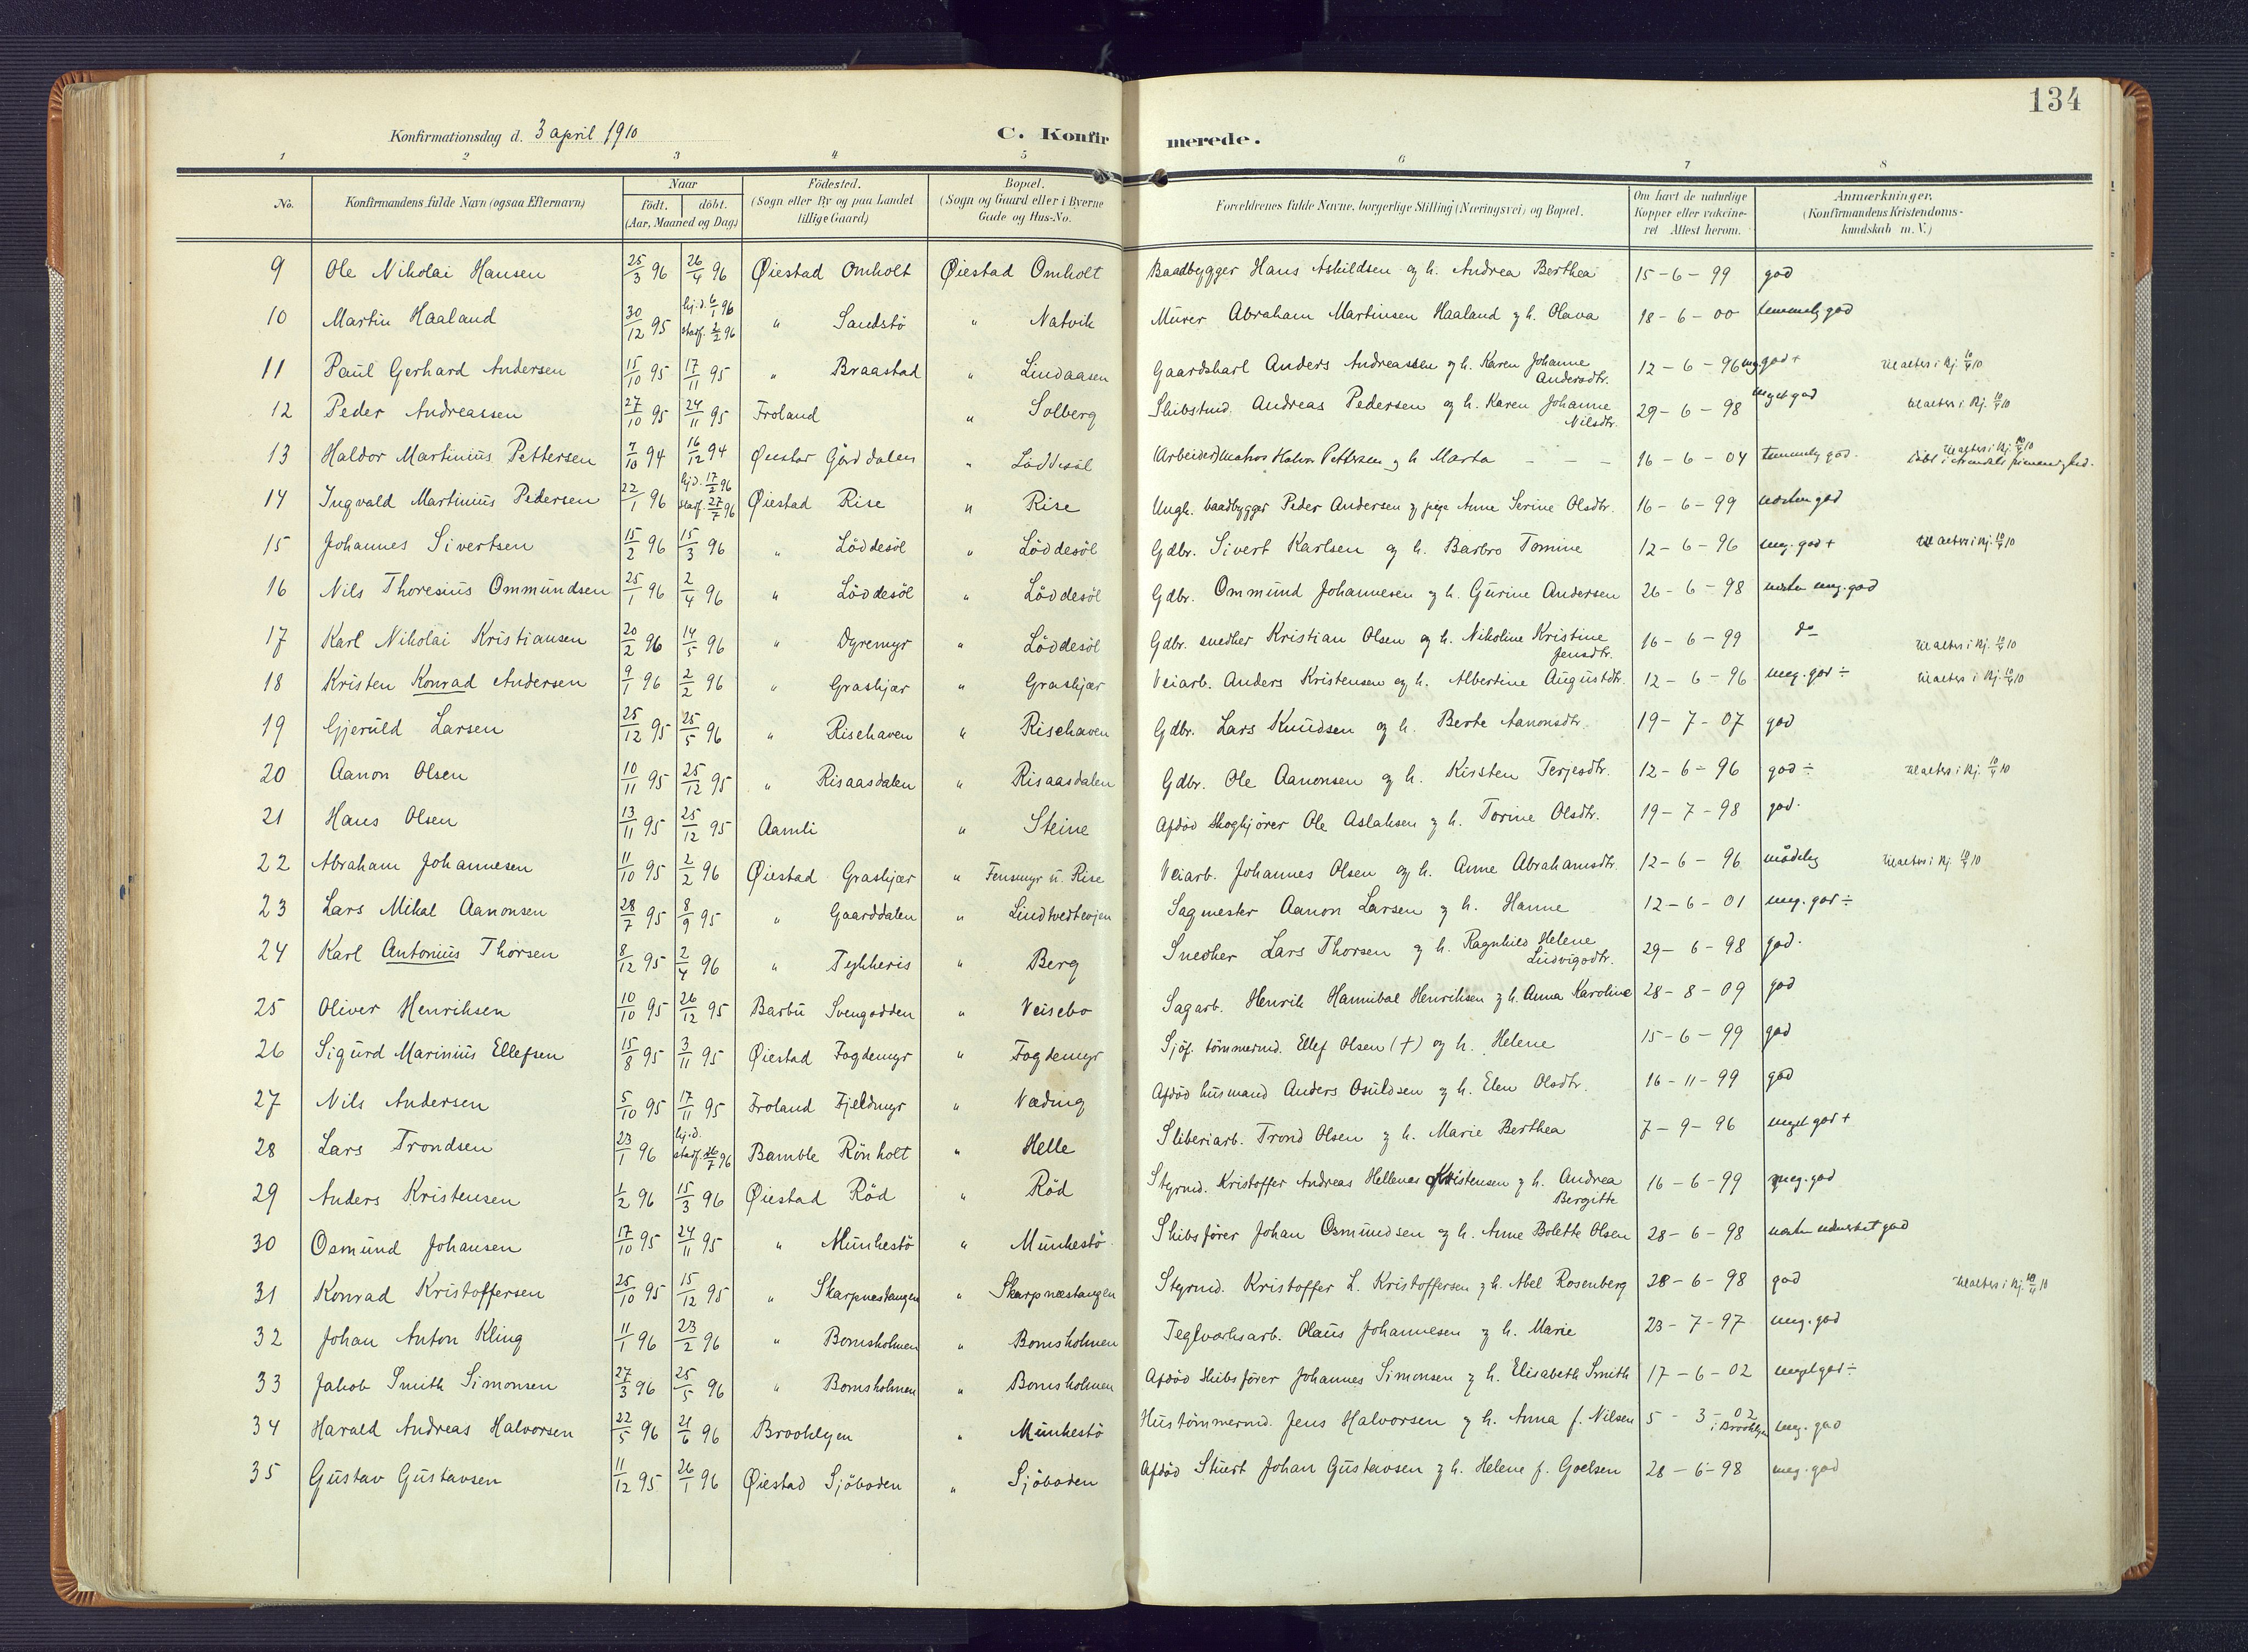 134
Konfirmationsdag d. 3 april 1910
C. Konfirmerede.
1 2 3 4 5 6 7 8
No. Konfirmandens fulde Navn (ogsaa Efternavn) Naar födt. döbt. (Aar, Maaned og Dag) Födested. (Sogn eller By og paa Landet tillige Gaard) Bopæl. (Sogn og Gaard eller i Byerne Gade og Hus-No. Forældrenes fulde Navne, borgerlige Stilling (Næringsvei) og Bopæl. Om havt de naturlige Kopper eller vakcineret Attest herom. Anmærkninger. (Konfirmandens Kristendomskundskab m. V.)
9 Ole Nikolai Hansen 25/3 96 26/4 96 Øiestad Omholt Øiestad Omholt Baadbygger Hans Askildsen og h. Andrea Berthea 15-6-99 god
10 Martin Haaland 30/12 95 hj.d. 6/1 96 stadf. 2/2 96 " Sandstö " Natvik Murer Abraham Martinsen Haaland og h. Olava 18-6-00 temmelig god
11 Paul Gerhard Andersen 15/10 95 17/11 95 " Braastad " Lindaasen Gaardskarl Anders Andreassen og h. Karen Johanne Andersdtr. 12-6-96 mg. god + til alters i Kj. 10/4 10
12 Peder Andreassen 27/10 95 24/11 95 Froland " Solberg Skibstmd. Andreas Pedersen og h. Karen Johanne Nilsdtr. 29-6-98 meget god til alters i Kj. 10/4 10
13 Haldor Martinius Pettersen 7/10 94 16/12 94 Øiestad Gårddalen " Löddesöl (Arbeider) matros Halvor Pettersen og h Marta - - - 16-6-04 temmelig god. til alters i Kj. 10/4 10
14 Ingvald Martinius Pedersen 22/1 96 hj.d. 17/2 96 stadf. 27/7 96 Øiestad Rise " Rise Ungk. baadbygger Peder Andersen og pige Anne Serine Olsdtr. 16-6-99 næsten god
15 Johannes Sivertsen 15/2 96 15/3 96 " Löddesöl " Löddesöl Gdbr. Sivert Karlsen og h. Barbro Tomine 12-6-96 meg. god + til alters i Kj. 10/4 10
16 Nils Thoresius Ommundsen 25/1 96 2/4 96 " Löddesöl " Löddesöl Gdbr. Ommund Johannesen og h. Gurine Andersen 26-6-98 næsten meg. god
17 Karl Nikolai Kristiansen 20/2 96 14/5 96 " Dyremyr " Löddesöl Gdbr. snedker Kristian Olsen og h. Nikoline Kristine Jensdtr. 16-6-99 do til alters i Kj. 10/4 10
18 Kristen Konrad Andersen 9/1 96 2/2 96 " Graskjær " Graskjær Veiarb. Anders Kristensen og h. Albertine Augustdtr. 12-6-96 meg. god ÷ til alters i Kj. 10/4 10
19 Gjeruld Larsen 25/12 95 25/5 96 " Risehaven " Risehaven Gdbr. Lars Knudsen og h. Berte Aanonsdtr. 19-7-07 god
20 Aanon Olsen 10/11 95 25/12 95 " Risaasdalen " Risaasdalen Gdbr. Ole Aanonsen og h. Kirsten Terjesdtr. 12-6-96 god ÷ til alters i Kj. 10/4 10
21 Hans Olsen 13/11 95 25/12 95 Aamli " Steine Afdöd skogkjörer Ole Aslaksen og h. Torine Olsdtr. 19-7-98 god.
22 Abraham Johannesen 11/10 95 2/2 96 Øiestad Graskjær " Fensmyr u. Rise Veiarb. Johannes Olsen og h. Anne Abrahamsdtr. 12-6-96 mådelig til alters i Kj. 10/4 10
23 Lars Mikal Aanonsen 28/7 95 8/9 95 " Gaarddalen " Lindtvedteojen Sagmester Aanon Larsen og h. Hanne 12-6-01 meg. god ÷
24 Karl Antonius Thorsen 8/12 95 2/4 96 " Tykkeris " Berg Snedker Lars Thorsen og h. Ragnhild Helene Ludvigsdtr. 29-6-98 god.
25 Oliver Henriksen 10/10 95 26/12 95 Barbu Svengodden " Veisebo Sagarb. Henrik Hannibal Henriksen og h. Anna Karoline 28-8-09 god
26 Sigurd Marinius Ellefsen 15/8 95 3/11 95 Øiestad Fogdemyr " Fogdemyr Sjöf. tömmermd. Ellef Olsen (†) og h. Helene 15-6-99 god
27 Nils Andersen 5/10 95 17/11 95 Froland Fjeldmyr " Næding Afdöd husmand Anders Osuldsen og h. Elen Olsdtr. 16-11-99 god
28 Lars Trondsen 23/1 96 hj.d. stadf. 26/7 96 Bamble Rönholt " Helle Sliberiarb. Trond Olsen og h. Marie Berthea 7-9-96 meget god +
29 Anders Kristensen 1/2 96 15/3 96 Øiestad Röd " Röd Styrmd. Kristoffer Andreas Hellenes Kristensen og h. Andrea Bergitte 16-6-99 meg. god
30 Osmund Johansen 17/10 95 24/11 95 " Munkestö " Munkestö Skibsförer Johan Osmundsen og h. Anne Bolette Olsen 28-6-98 næsten udmerket god
31 Konrad Kristoffersen 25/10 95 15/12 95 " Skarpnæstangen " Skarpnæstangen Styrmd. Kristoffer L. Kristoffersen og h. Abel Rosenberg 28-6-98 god til alters i Kj. 10/4 10
32 Johan Anton Kling 11/1 96 23/2 96 " Bomsholmen " Bomsholmen Teglværksarb. Olaus Johannesen og h. Marie 23-7-97 meg. god
33 Jakob Smith Simonsen 27/3 96 25/5 96 " Bomsholmen " Bomsholmen Afdöd skibsförer Johannes Simonsen og h. Elisabeth Smith 17-6-02 meget god ÷
34 Harald Andreas Halvorsen 22/5 96 21/6 96 Brooklyen " Munkestö Hustömmermd. Jens Halvorsen og h. Anna f. Nilsen 5-3-02 i Brooklyen meg. god
35 Gustav Gustavsen 11/12 95 26/1 96 Øiestad Sjöboden " Sjöboden Afdöd Stuert Johan Gustavsen og h. Helene f. Goelsen 28-6-98 meg. god